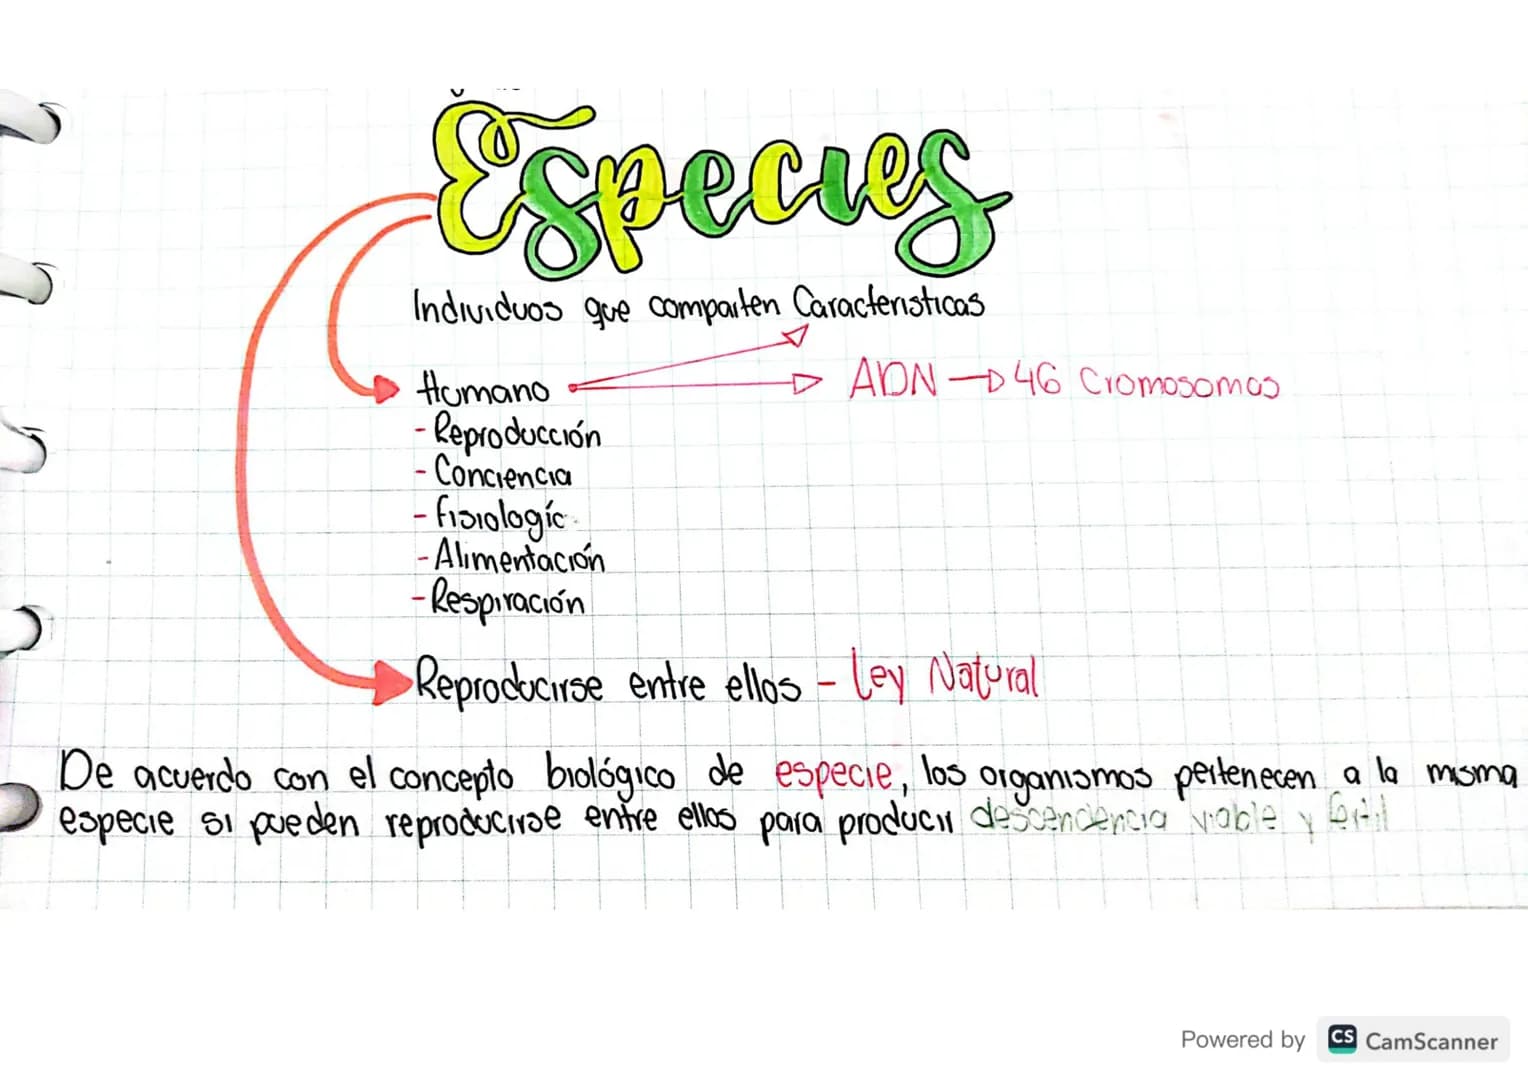 Especies
Individuos que comparten Caracteristicas
Humano
ADN → 46 Cromosomas
- Reproducción
- Conciencia
- fisiologíc
- Alimentación
- Respiración
Reproducirse entre ellos - Ley Natural
De acuerdo con el concepto biológico de especie, los organismos pertenecen a la misma
especie si pueden reproducirse entre ellos para producir descendencia viable y fértil
Powered by CS CamScanner